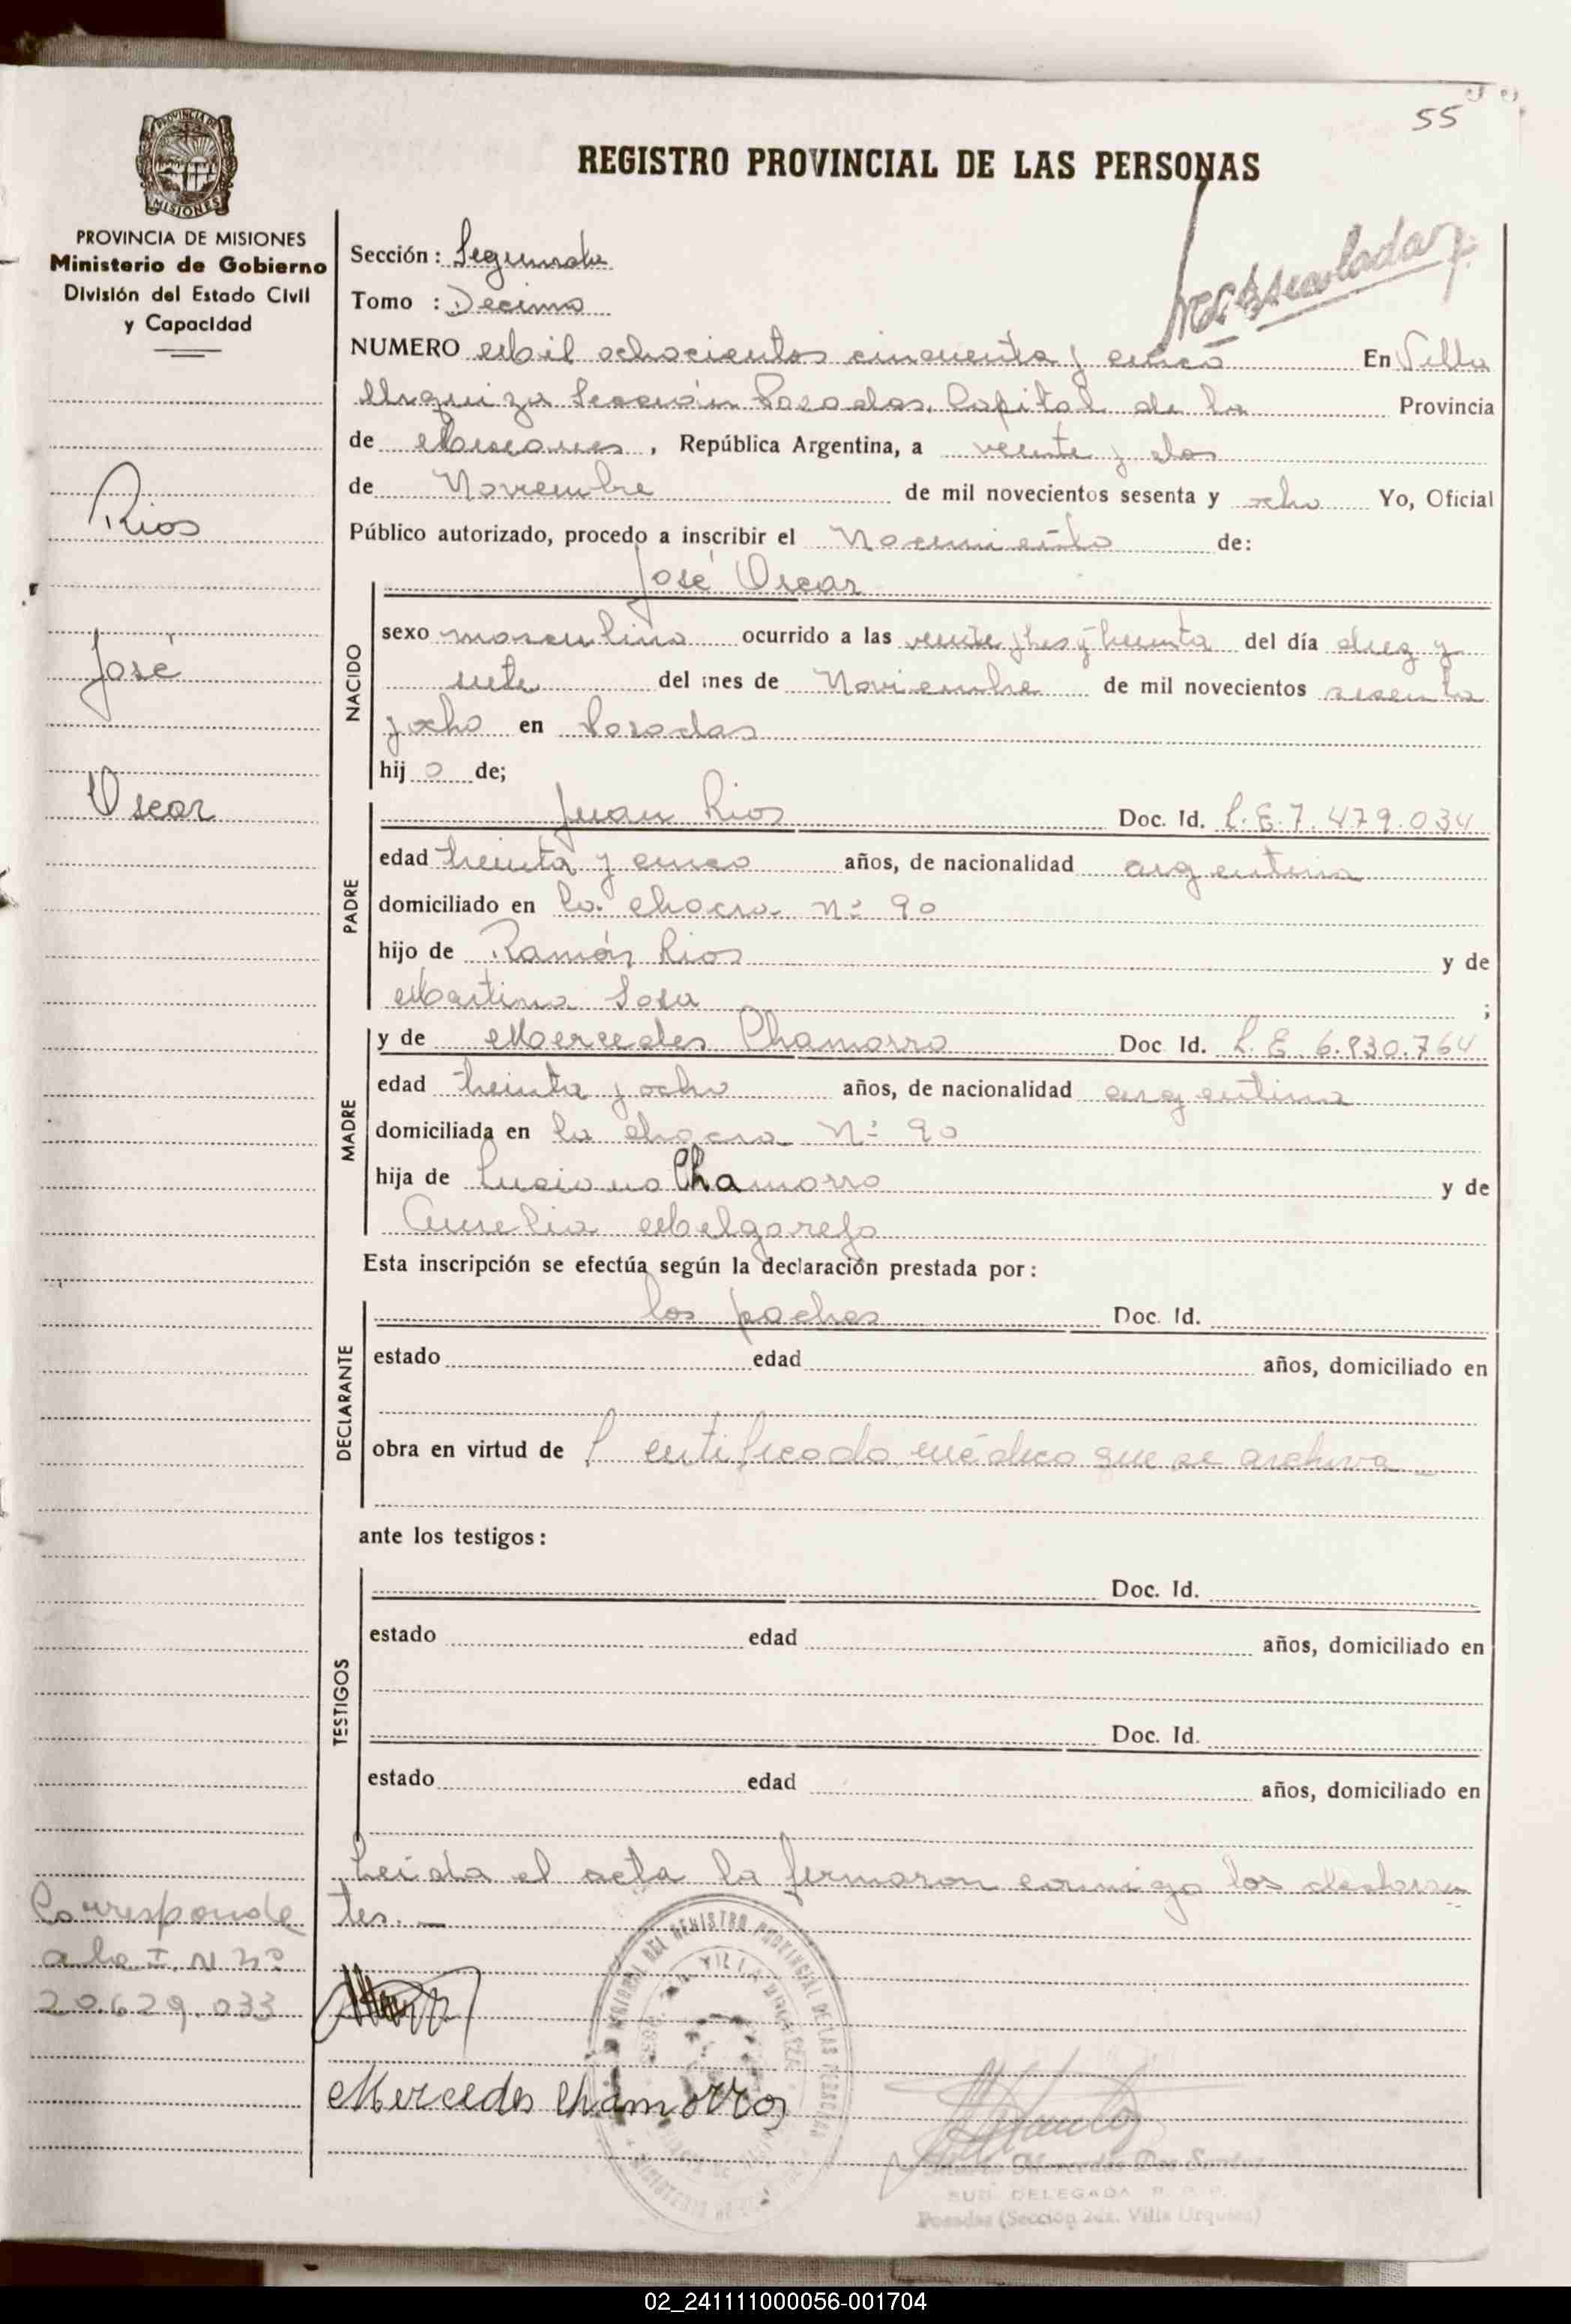 55
REGISTRO PROVINCIAL DE LAS PERSONAS
PROVINCIA DE MISIONES
Ministerio de Gobierno
División del Estado Civil
y Capacidad
Rios
José
Oscar
Corresponde
a la I. N Nº
20.629.033
Sección: Segunda
Tomo : Decimo
NUMERO Mil ochocientos cincuenta y cinco En Villa
Urquiza Sección Posadas, Capital de la Provincia
de Misiones, República Argentina, a veinte y dos
de Noviembre de mil novecientos sesenta y ocho Yo, Oficial
Público autorizado, procedo a inscribir el Nacimiento de:
José Oscar
NACIDO
sexo masculino ocurrido a las veinte y tres y treinta del día diez y
siete del mes de Noviembre de mil novecientos sesenta
y ocho en Posadas
hijo de;
PADRE
Juan Rios Doc. Id. L.E. 7.479.034
edad treinta y cinco años, de nacionalidad argentina
domiciliado en la chacra Nº 90
hijo de Ramón Rios y de
Martina Sosa ;
MADRE
y de Mercedes Chamorro Doc Id. L.E. 6.830.764
edad treinta y ocho años, de nacionalidad argentina
domiciliada en la chacra Nº 90
hija de Luciano Chamorro y de
Aurelia Melgarejo
Esta inscripción se efectúa según la declaración prestada por:
DECLARANTE
los padres Doc. Id.
estado edad años, domiciliado en
obra en virtud de Certificado médico que se archiva
ante los testigos:
TESTIGOS
Doc. Id.
estado edad años, domiciliado en
Doc. Id.
estado edad años, domiciliado en
Leida el acta la firmaron conmigo los declaran
tes.
Mercedes Chamorro
Mercedes Dos Santos
SUB DELEGADA R. P. P.
Posadas (Sección 2da. Villa Urquiza)
02_241111000056-001704